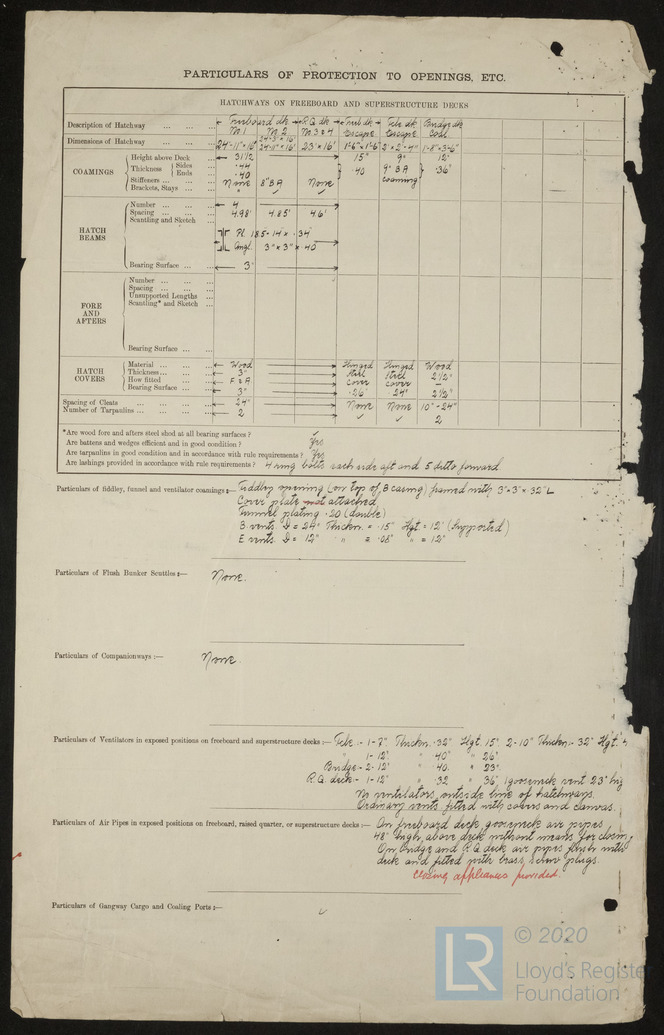 PARTICULARS OF PROTECTION TO OPENINGS, ETC.
HATCHWAYS ON FREEBOARD AND SUPERSTRUCTURE DECKS
Description of Hatchway ... ... ... Freeboard dk R.Q. dk Freeb dk Fcle dk Bridge dk
No 1 No 2 No 3 & 4 Escape Escape Coal
Dimensions of Hatchway ... ... ... 24'-11" × 16' 23' × 16' 1'-6" × 1'-6" 2' × 2'-4" 1'-8" × 3'-6"
COAMINGS
Height above Deck ... 31 1/2 15" 9" 12"
Thickness Sides ... .44 .40 9" BA .36"
Ends ... .40 coaming
Stiffeners ... ... ... None 8" BA None
Brackets, Stays ... ... "
HATCH BEAMS
Number ... ... ... ... 4
Spacing ... ... ... ... 4.98' 4.85' 4.6'
Scantling and Sketch ...
Pl. 18.5 - 14 × .34
Angl. 3" × 3" × .40
Bearing Surface ... ... 3"
FORE AND AFTERS
Number ... ... ... ...
Spacing ... ... ... ...
Unsupported Lengths ...
Scantling* and Sketch ...
Bearing Surface ... ...
HATCH COVERS
Material ... ... ... ... Wood Hinged Hinged Wood
Thickness ... ... ... ... 3" Steel Steel 2 1/2"
How fitted ... ... ... F & A Cover Cover —
Bearing Surface ... ... 3" .26" 24" 2 1/2"
Spacing of Cleats ... ... ... ... 24" None None 10"-24"
Number of Tarpaulins ... ... ... ... 2 2
*Are wood fore and afters steel shod at all bearing surfaces?
Are battens and wedges efficient and in good condition? Yes
Are tarpaulins in good condition and in accordance with rule requirements? Yes
Are lashings provided in accordance with rule requirements? 4 ring bolts each side aft and 5 ditto forward
Particulars of fiddley, funnel and ventilator coamings:— Fiddley opening (on top of B casing) framed with 3" × 3" × 32" L
Cover plate not attached
Funnel plating .20 (double)
B vents. D = 24" Thickn. = .15" Hgt = 12' (Supported)
E vents. D = 12" " = .08" " = 12'
Particulars of Flush Bunker Scuttles:— None.
Particulars of Companionways:— None.
Particulars of Ventilators in exposed positions on freeboard and superstructure decks:— Fcle :- 1-7" Thickn .32" Hgt. 15" 2-10" Thickn:- 32" Hgt.
" 1-12" " .40" " 26"
Bridge - 2-12" " .40. " 23".
R.Q. deck:- 1-12" " .32 " 36", 1 gooseneck vent 23" hig
No ventilators outside line of hatchways.
Ordinary vents fitted with covers and canvas.
Particulars of Air Pipes in exposed positions on freeboard, raised quarter, or superstructure decks:— On freeboard deck, gooseneck air pipes
48" high above deck without means for closing
On bridge and R.Q. deck air pipes flush with
deck and fitted with brass screw plugs.
Closing appliances provided.
Particulars of Gangway Cargo and Coaling Ports:—
© 2020
LR
Lloyd's Register
Foundation